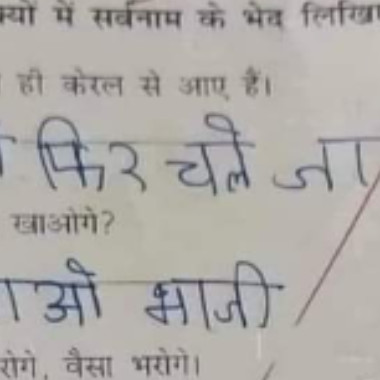 क्यों में सर्वनाम के भेद लिखिए
ही केरल से आए हैं।
फिर चले जा
खाओगे?
ओ भाजी
रोगे, वैसा भरोगे।